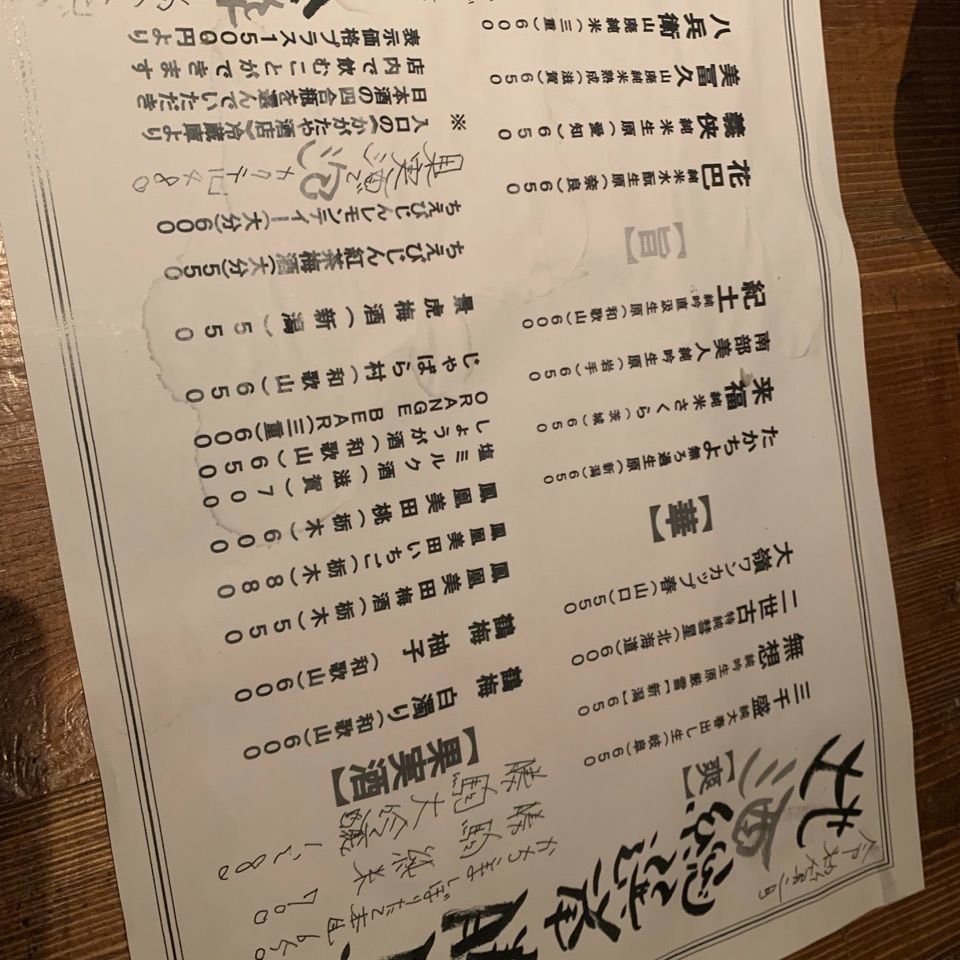 地酒
【爽】
三千盛 純大春出し生(岐阜)650
無想 純吟生原厳雪【新潟】650
二世古 特純彗星(北海道)600
大嶺ワンカップ 春(山口)550
【華】
たかちよ 無ろ過生原(新潟)650
来福 純米さくら(茨城)650
南部美人 純吟生原(岩手)650
紀土 純吟直汲生原(和歌山)600
【旨】
花巴 純米水酛生原(奈良)650
義侠 純米生原(愛知)650
美冨久 山廃純米熟成(滋賀)650
八兵衛 山廃純米(三重)600
勝駒 純米 700
勝駒 大吟醸 1280
【果実酒】
鶴梅 白濁り(和歌山)600
鶴梅 柚子(和歌山)600
鳳凰美田梅酒(栃木)550
鳳凰美田いちご(栃木)880
鳳凰美田桃(栃木)600
塩ミルク酒(滋賀)700
しょうが酒(和歌山)650
ORANGE BEAR(三重)600
じゃばら村(和歌山)650
景虎梅酒(新潟)550
ちえびじん紅茶梅酒(大分)550
ちえびじんレモンティー(大分)600
※ 入口の〈かがたや酒店〉冷蔵庫より
日本酒の四合瓶を選んでいただき
店内で飲むことができます
表示価格プラス1500円より